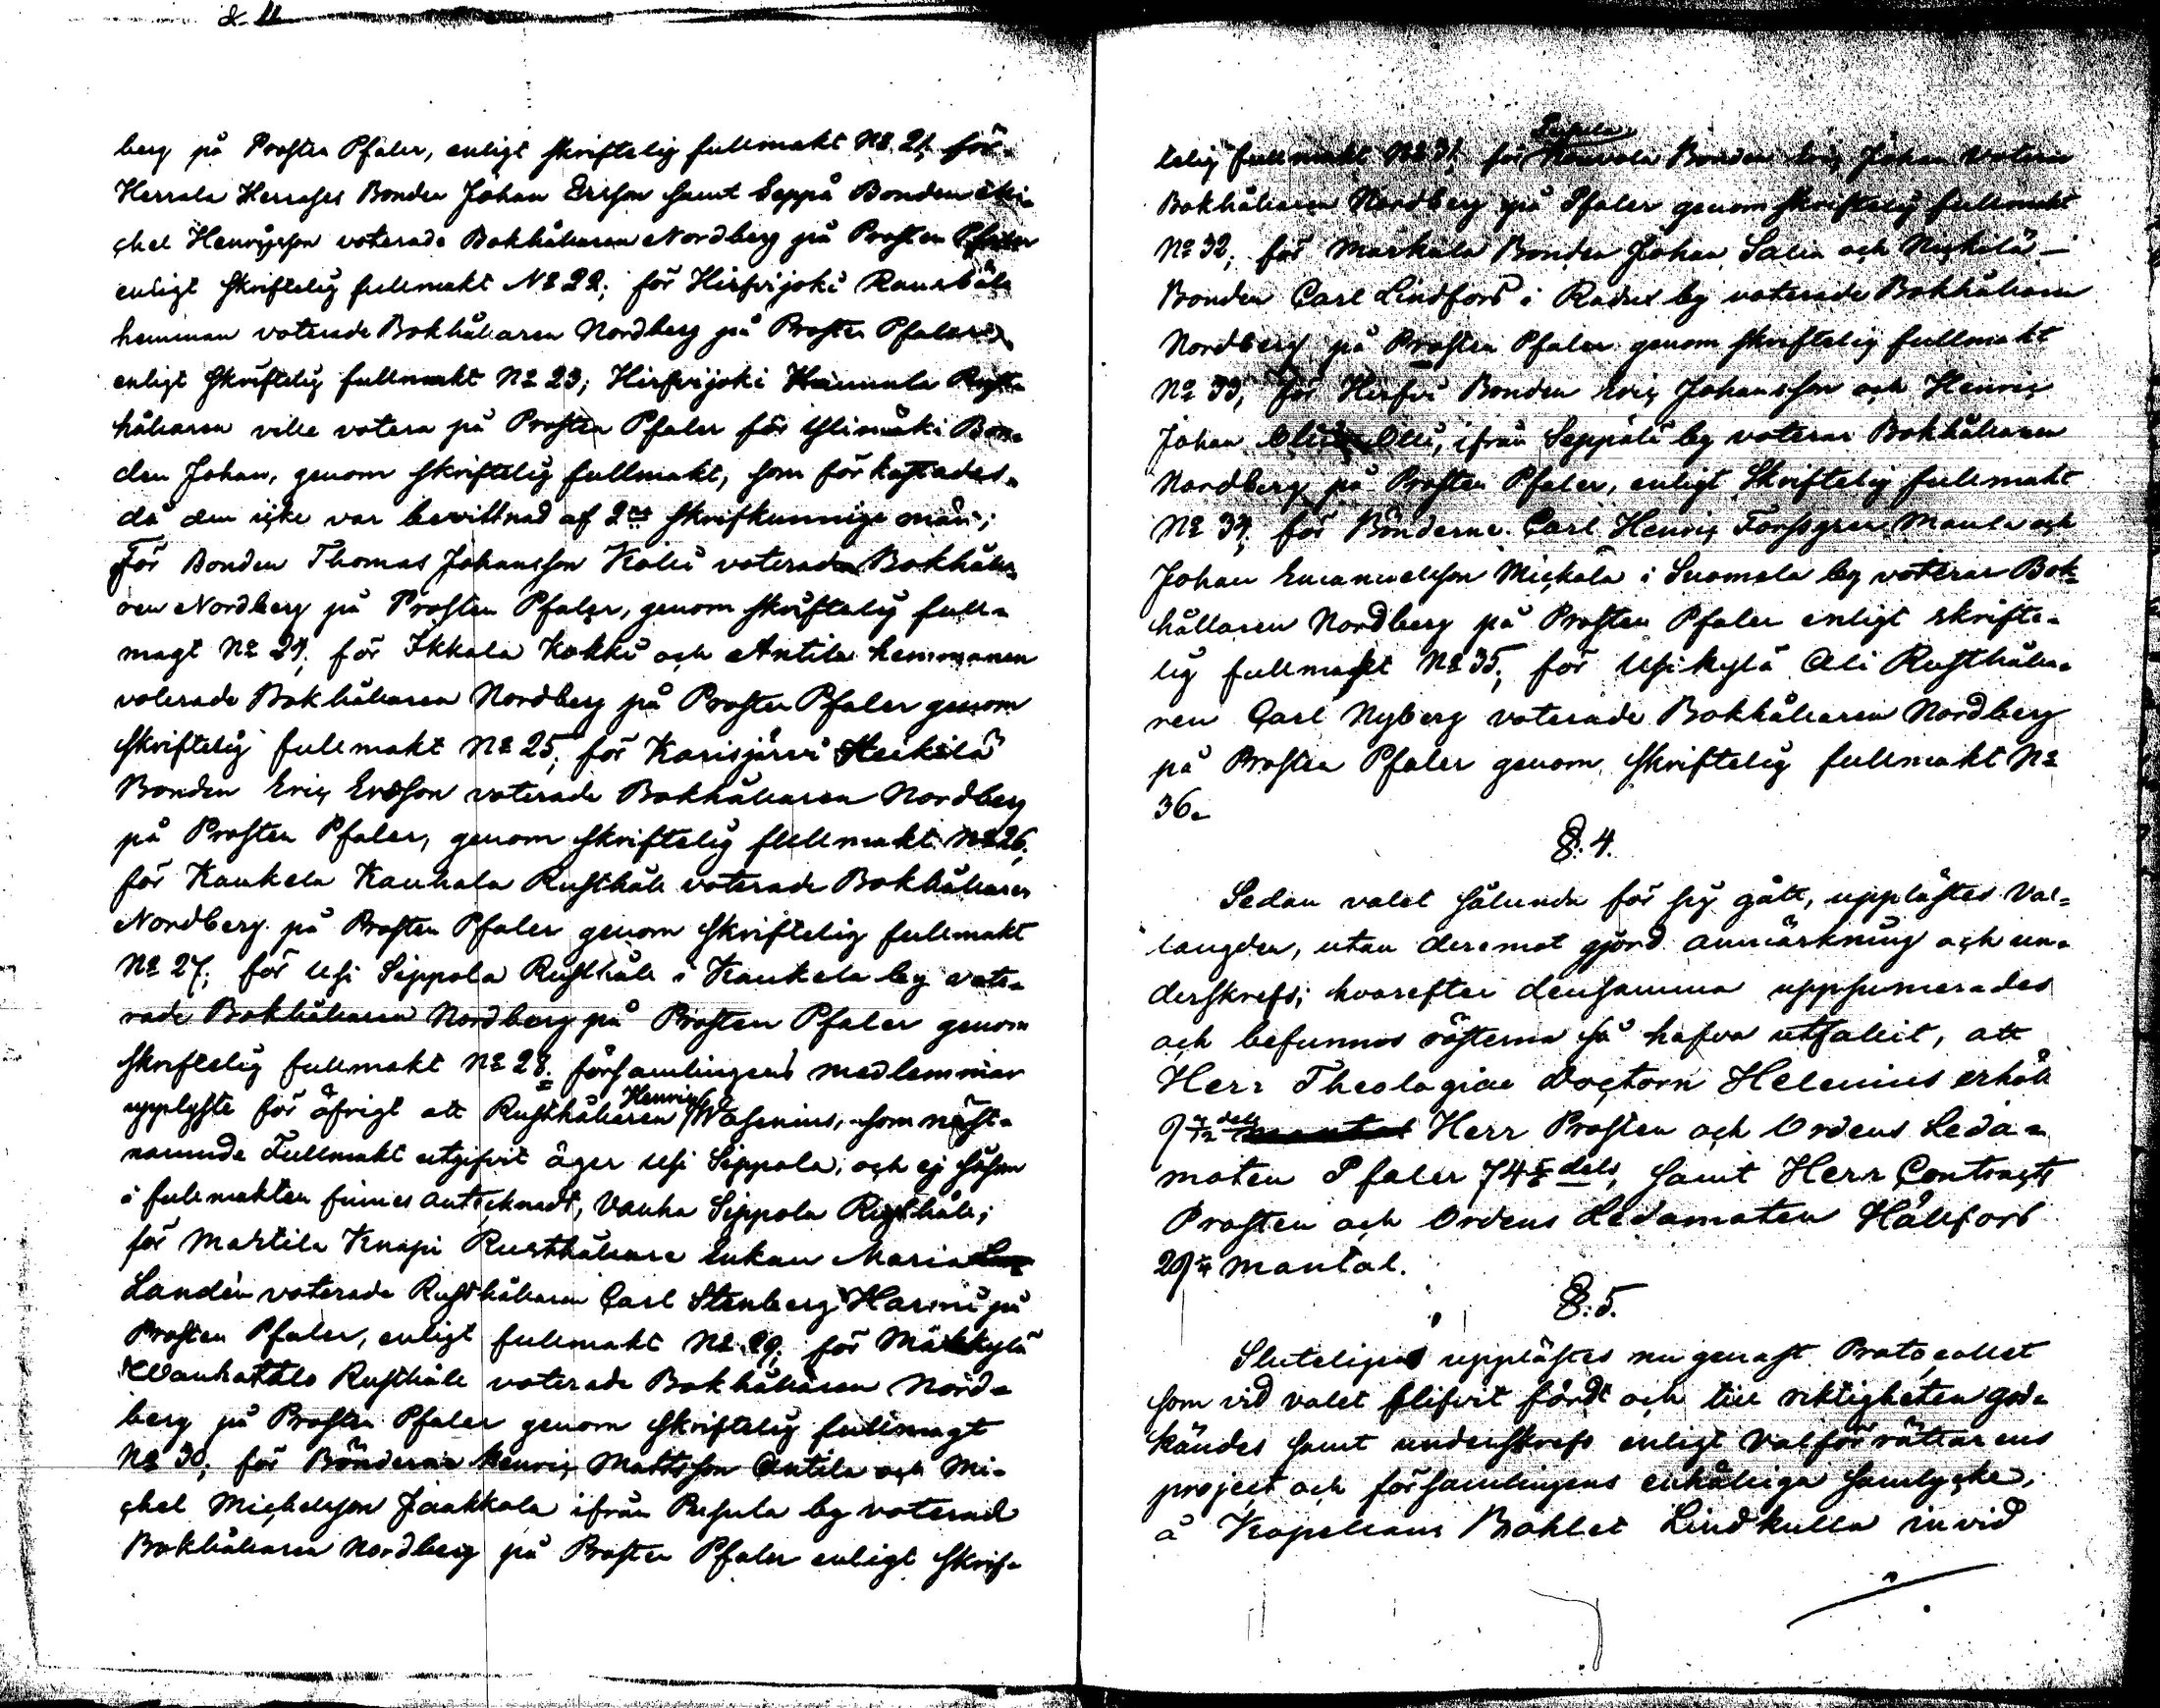 berg på Prosten Pfaler, enligt skriftelig fullmakt No 21. för
Herrala Herrases Bonden Johan Ericson samt Seppä Bonden Mi-
chel Henricsson voterade Bokhållaren Nordberg på Prosten Pfaler
enligt skriftelig fullmakt No 22; för Hirfvijoki
hemman voterade Bokhållaren Nordberg på Prosten Pfaler
enligt skriftelig fullmakt No 23; Hirfvijoki Hannula Rust-
hållaren ville votera på Prosten Pfaler för Ylimäki Bon-
den Johan, genom skriftelig fullmakt, som förkastades,
då den icke var bevittnad af 2ne skrifkunnige män;
För Bonden Thomas Johansson Kolu voterade Bokhålla-
ren Nordberg på Prosten Pfaler, genom skriftelig full-
magt No 24; för Ikkala Kokki och Antila hemmanen
voterade Bokhållaren Nordberg på Prosten Pfaler genom
skriftelig fullmakt No 25; för Karisjärvi Heikilä
Bonden Eric Ericson voterade Bokhållaren Nordberg
på Prosten Pfaler, genom skriftelig fullmakt No 26;
för Kaukela Kauhala Rusthåll voterade Bokhållaren
Nordberg på Prosten Pfaler genom skriftelig fullmakt
No 27; för Usi Sippola Rusthåll i Kaukela by vote-
rade Bokhållaren Nordberg på Prosten Pfaler genom
skriftelig fullmakt No 28. församlingens medlemmar
upplyste för öfrigt att Rusthållaren Henric Wasenius, som näst-
nämnde Fullmakt utgifvit äger Usi Sippola; och ej såsom
i fullmakten finnes antecknadt, Vanha Sippola Rusthåll;
för Martila Knapi Rusthållare Enkan Maria
Landén voterade Rusthållaren Carl Stenberg Harmi på
Prosten Pfaler, enligt fullmakt No 29; för Märkkylä
Wanhatalo Rusthåll voterade Bokhållaren Nord-
berg på Prosten Pfaler genom skriftelig fullmagt
No 30; för Bönderne Henric Mattsson Antila och Mi-
chel Michelsson Jaakkola ifrån Pusula by voterad
Bokhållaren Nordberg på Prosten Pfaler enligt skrif-
telig fullmakt No 31; för Bonden Eric Johan voterar
Bokhållaren Nordberg på Pfaler genom skriftelig fullmakt
No 32; för Markula Bonden Johan Salin och Nickilä
Bonden Carl Lindfors i Radus by voterade Bokhållaren
Nordberg på Prosten Pfaler genom skriftelig fullmakt
No 33; för Hirfvi Bonden Eric Johansson och Henric
Johan Olli, ifrån Seppälä by voterar Bokhållaren
Nordberg på Prosten Pfaler, enligt Skriftelig fullmakt
No 34; för Bönderne Carl Henric Forssgren Maula och
Johan Emanuelsson Mickala i Suomela by voterar Bok-
hållaren Nordberg på Prosten Pfaler enligt skrifte-
lig fullmackt No 35; för Usikylä Ali Rusthålla-
ren Carl Nyberg voterade Bokhållaren Nordberg
på Prosten Pfaler genom skriftelig fullmakt No
36.
§. 4.
Sedan valet sålunda för sig gått, upplästes Val-
längden, utan deremot gjord anmärkning och un-
derskrefs; hvarefter densamma uppsumerades
och befunnos rösterna så hafva utfallit, att
Herr Theologiae Doctorn Helenius erhöll
Herr Prosten och Ordens Leda-
moten Pfaler dels, samt Herr Contracts
Prosten och Ordens Ledamoten Hällfors
mantal.
§. 5.
Sluteligen upplästes nu genast Protocollet
som vid valet blifvit fördt och till riktigheten god-
kändes samt underskrefs enligt Valförrättarens
project och församlingens enhälliga samtycke;
å Kapellans Bohlet Lindkulla invid